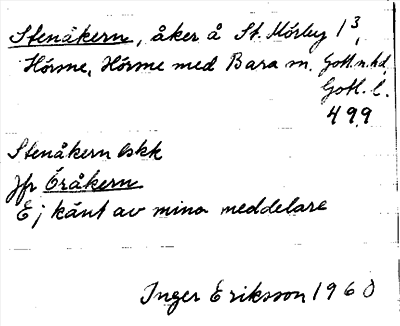 Stenåkern, åker å St. Mörby 1³,
Hörsne, Hörsne med Bara sn. Gotl. n. hd,
Gotl. l.
499
Stenåkern lskk
Jfr Öråkern
Ej känt av mina meddelare
Inger Eriksson 1960